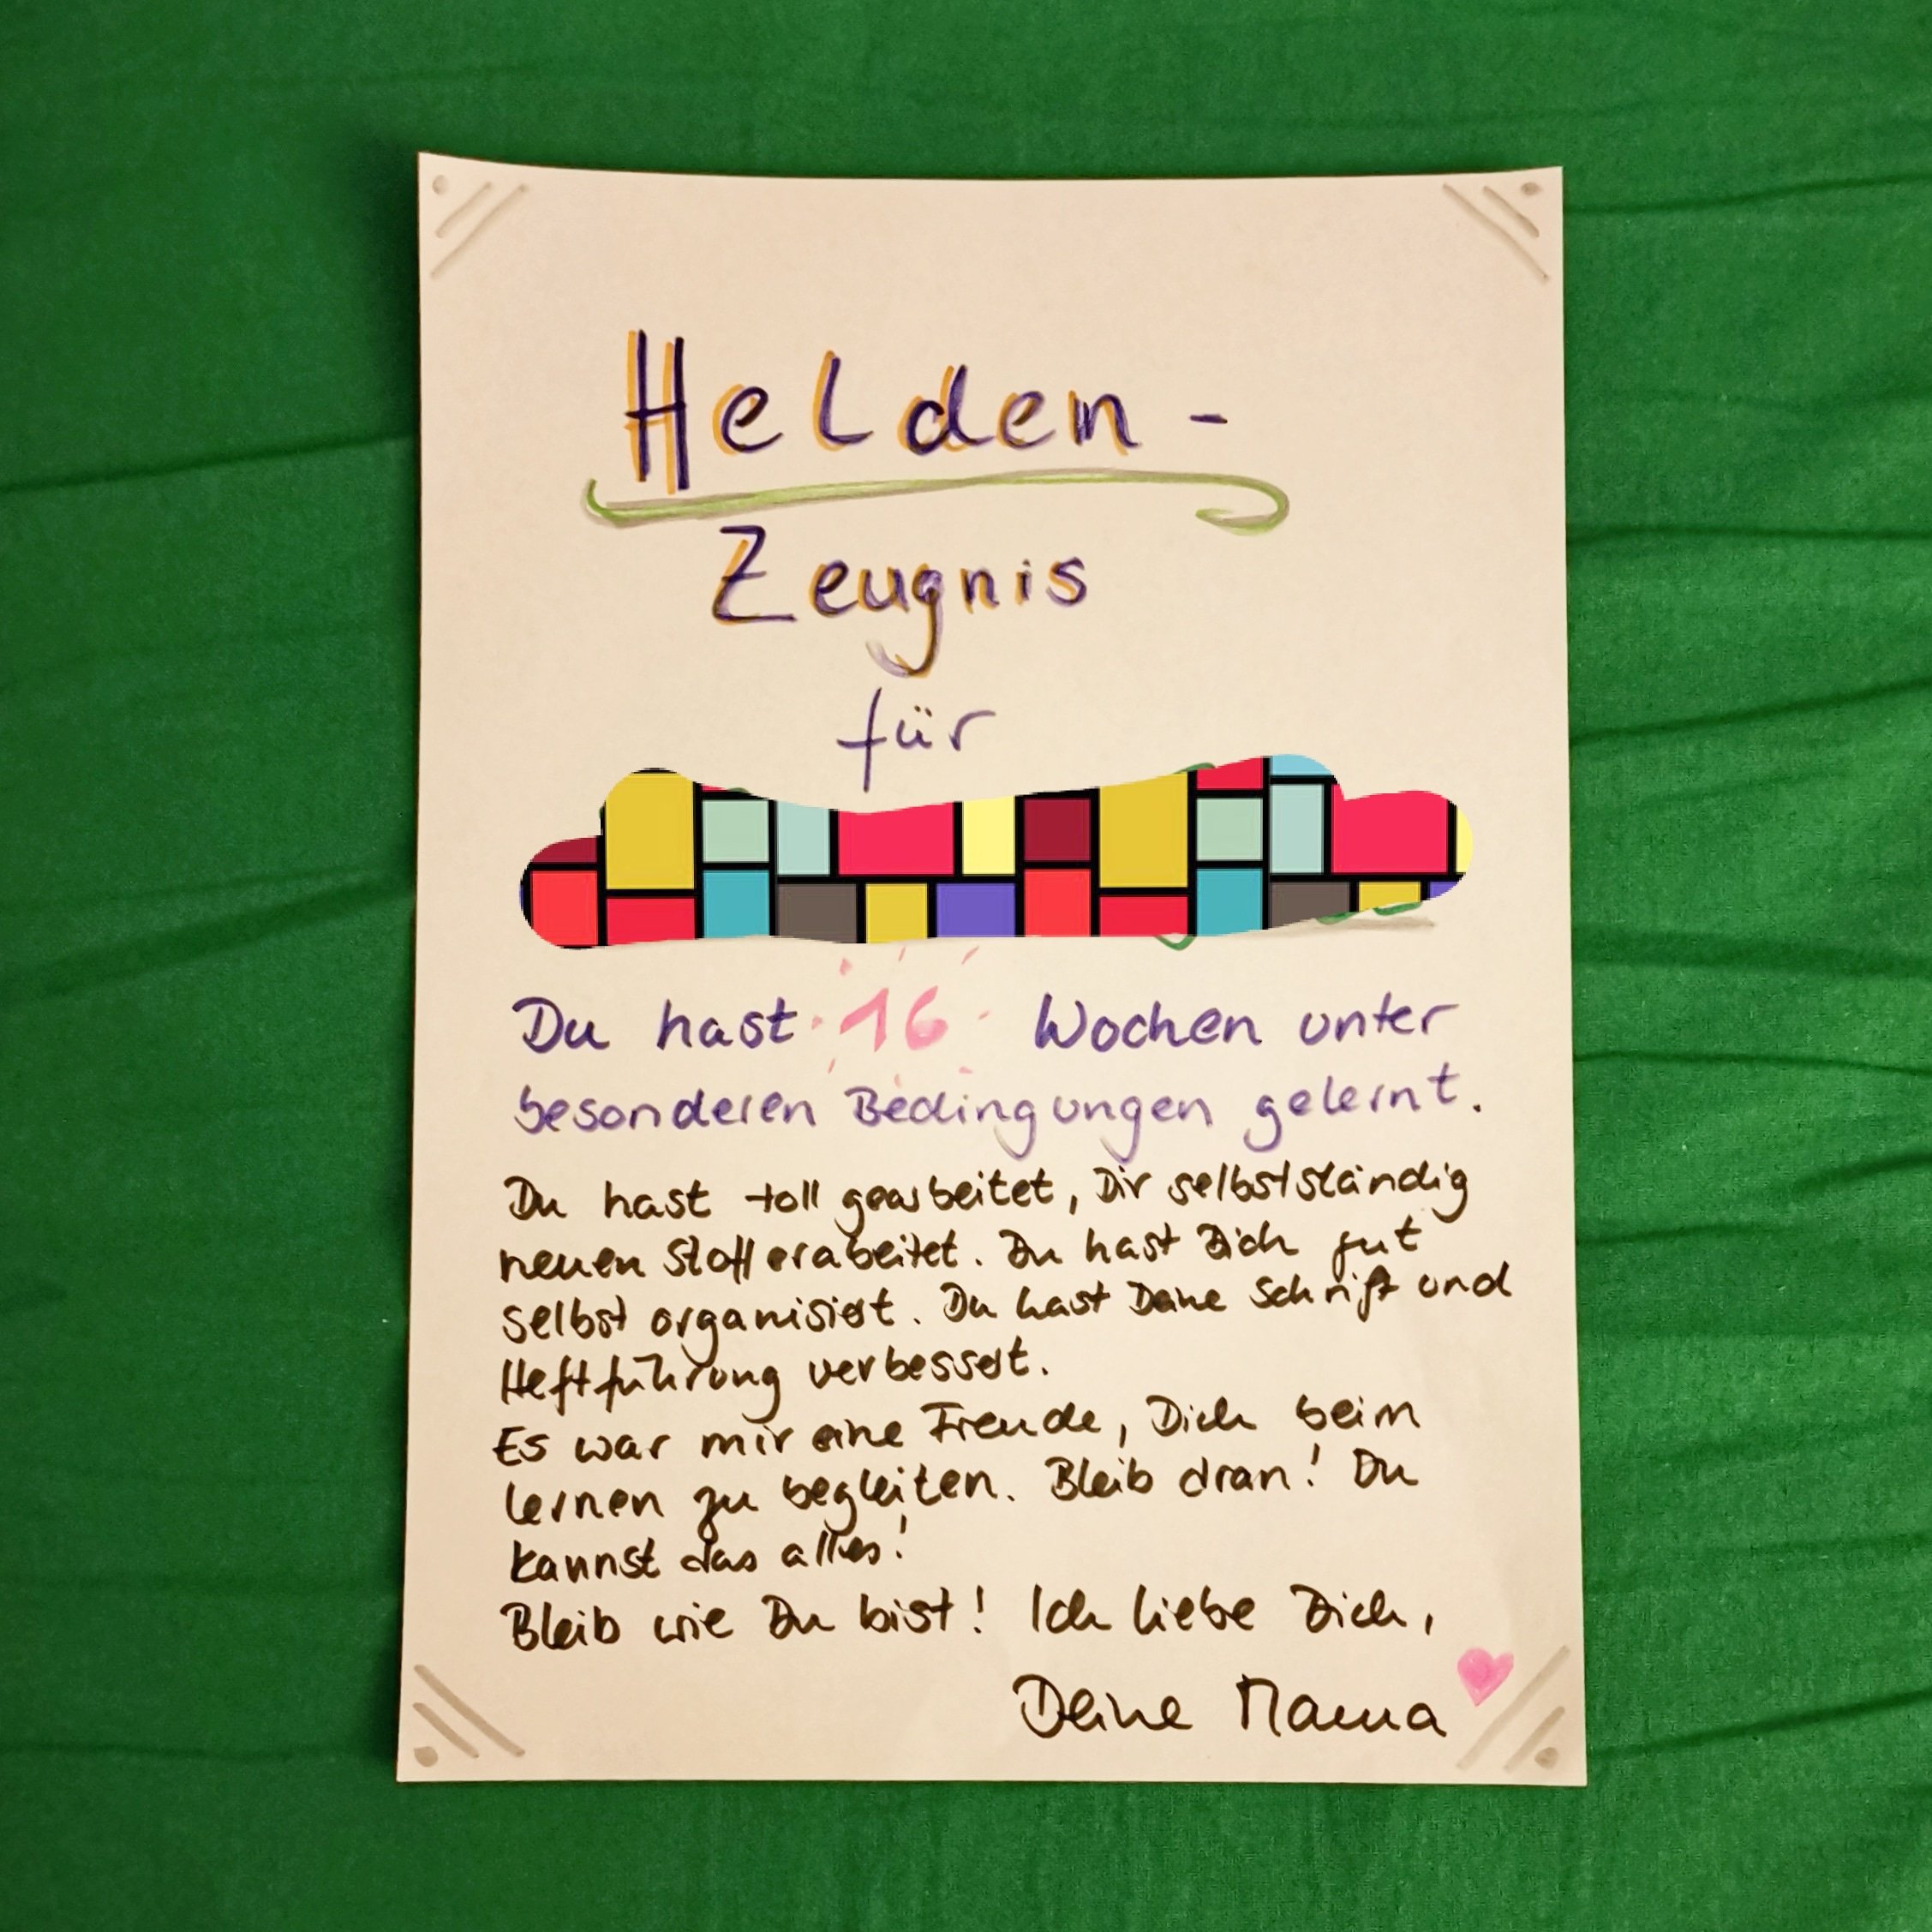 Helden-
Zeugnis
für
Du hast 16 Wochen unter
besonderen Bedingungen gelernt.
Du hast toll gearbeitet, Dir selbstständig
neuen Stoff erabeitet. Du hast Dich gut
selbst organisiert. Du hast Deine Schrift und
Heftführung verbessert.
Es war mir eine Freude, Dich beim
lernen zu begleiten. Bleib dran! Du
kannst das alles!
Bleib wie Du bist! Ich liebe Dich,
Deine Mama